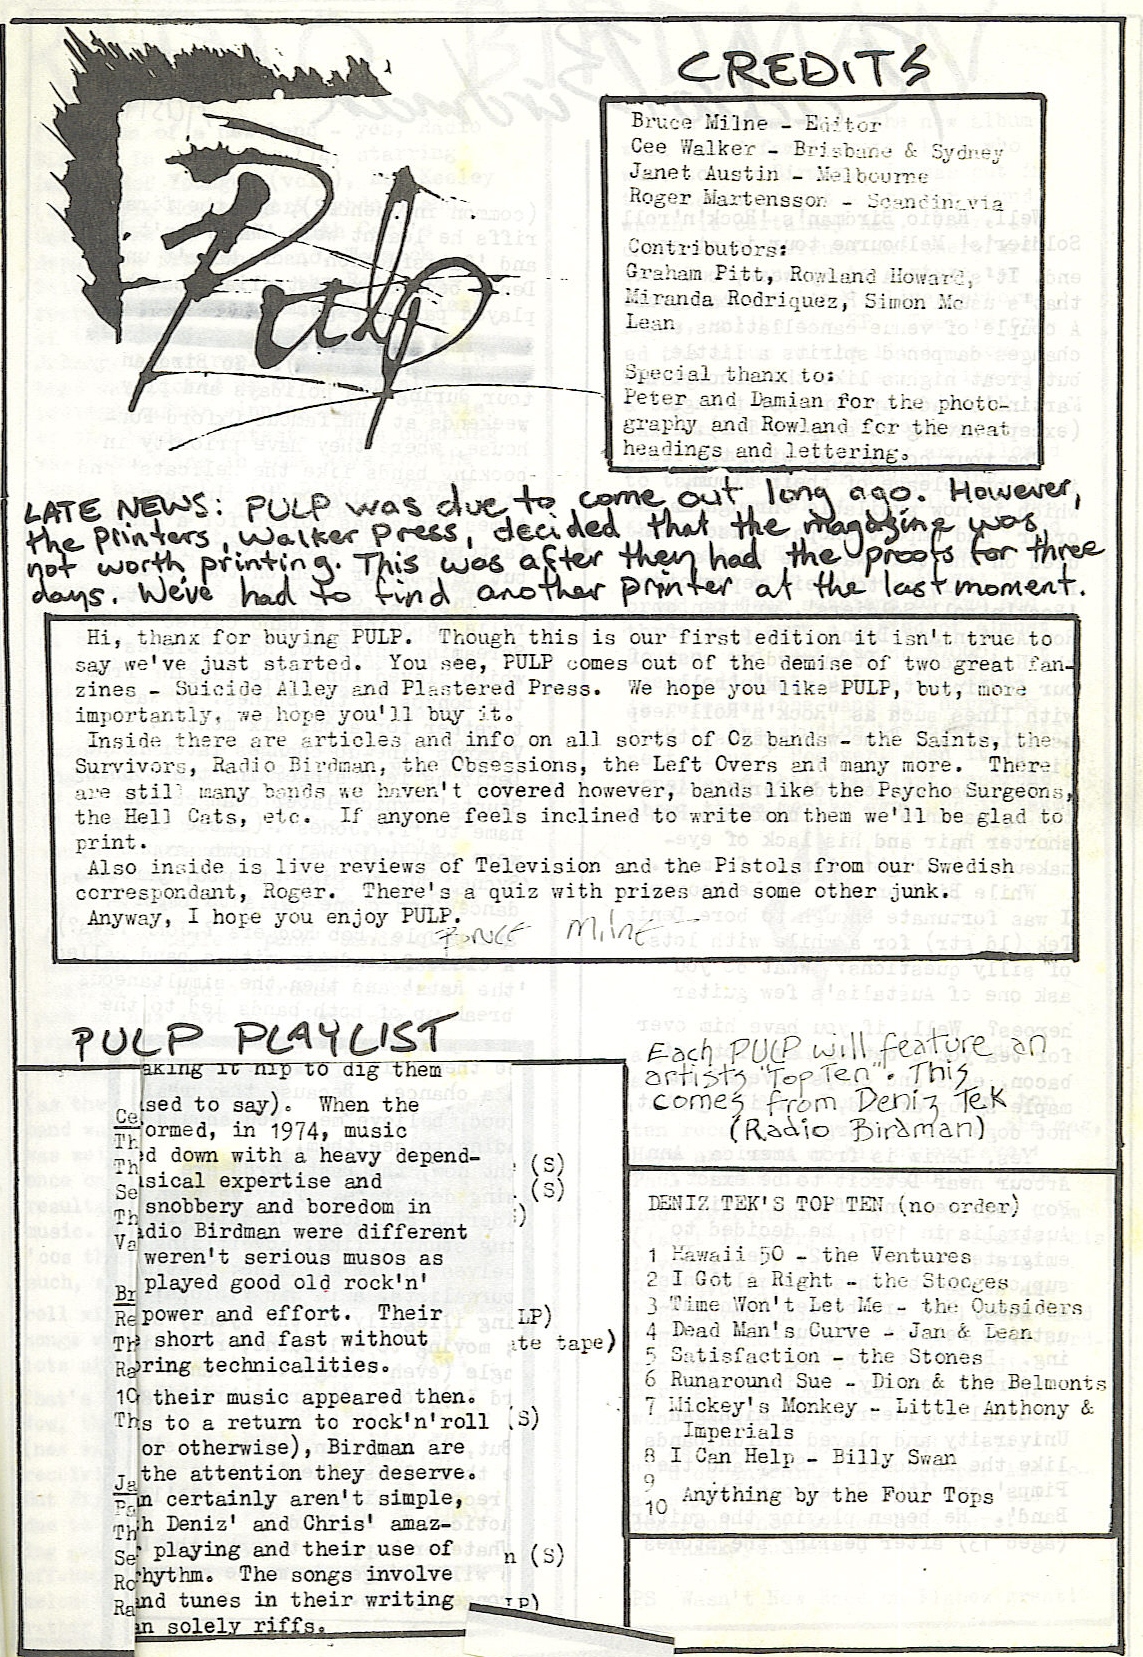 Pulp
CREDITS
Bruce Milne - Editor
Cee Walker - Brisbane & Sydney
Janet Austin - Melbourne
Roger Martensson - Scandinavia
Contributors:
Graham Pitt, Rowland Howard,
Miranda Rodriquez, Simon Mc
Lean
Special thanx to:
Peter and Damian for the photo-
graphy and Rowland for the neat
headings and lettering.
LATE NEWS: PULP was due to come out long ago. However,
the printers, Walker Press, decided that the magazine was
not worth printing. This was after they had the proofs for three
days. We've had to find another printer at the last moment.
Hi, thanx for buying PULP. Though this is our first edition it isn't true to
say we've just started. You see, PULP comes out of the demise of two great fan-
zines - Suicide Alley and Plastered Press. We hope you like PULP, but, more
importantly, we hope you'll buy it.
Inside there are articles and info on all sorts of Oz bands - the Saints, the
Survivors, Radio Birdman, the Obsessions, the Left Overs and many more. There
are still many bands we haven't covered however, bands like the Psycho Surgeons,
the Hell Cats, etc. If anyone feels inclined to write on them we'll be glad to
print.
Also inside is live reviews of Television and the Pistols from our Swedish
correspondant, Roger. There's a quiz with prizes and some other junk.
Anyway, I hope you enjoy PULP.
BRUCE Milne
PULP PLAYLIST
aking it hip to dig them
Ce sed to say). When the
Th ormed, in 1974, music
Th d down with a heavy depend- (S)
Se sical expertise and (S)
Th snobbery and boredom in )
Va dio Birdman were different
weren't serious musos as
Br played good old rock'n'
Re power and effort. Their LP)
Th short and fast without te tape)
Ra ring technicalities.
10 their music appeared then.
Th s to a return to rock'n'roll (S)
or otherwise), Birdman are
Ja the attention they deserve.
Pa n certainly aren't simple,
Th h Deniz' and Chris' amaz-
Se playing and their use of n (S)
Ro hythm. The songs involve
Ra nd tunes in their writing LP)
n solely riffs.
Each PULP will feature an
artists "Top Ten". This
comes from Deniz Tek
(Radio Birdman)
DENIZ TEK'S TOP TEN (no order)
1 Hawaii 50 - the Ventures
2 I Got a Right - the Stooges
3 Time Won't Let Me - the Outsiders
4 Dead Man's Curve - Jan & Dean
5 Satisfaction - the Stones
6 Runaround Sue - Dion & the Belmonts
7 Mickey's Monkey - Little Anthony &
Imperials
8 I Can Help - Billy Swan
9
10 Anything by the Four Tops